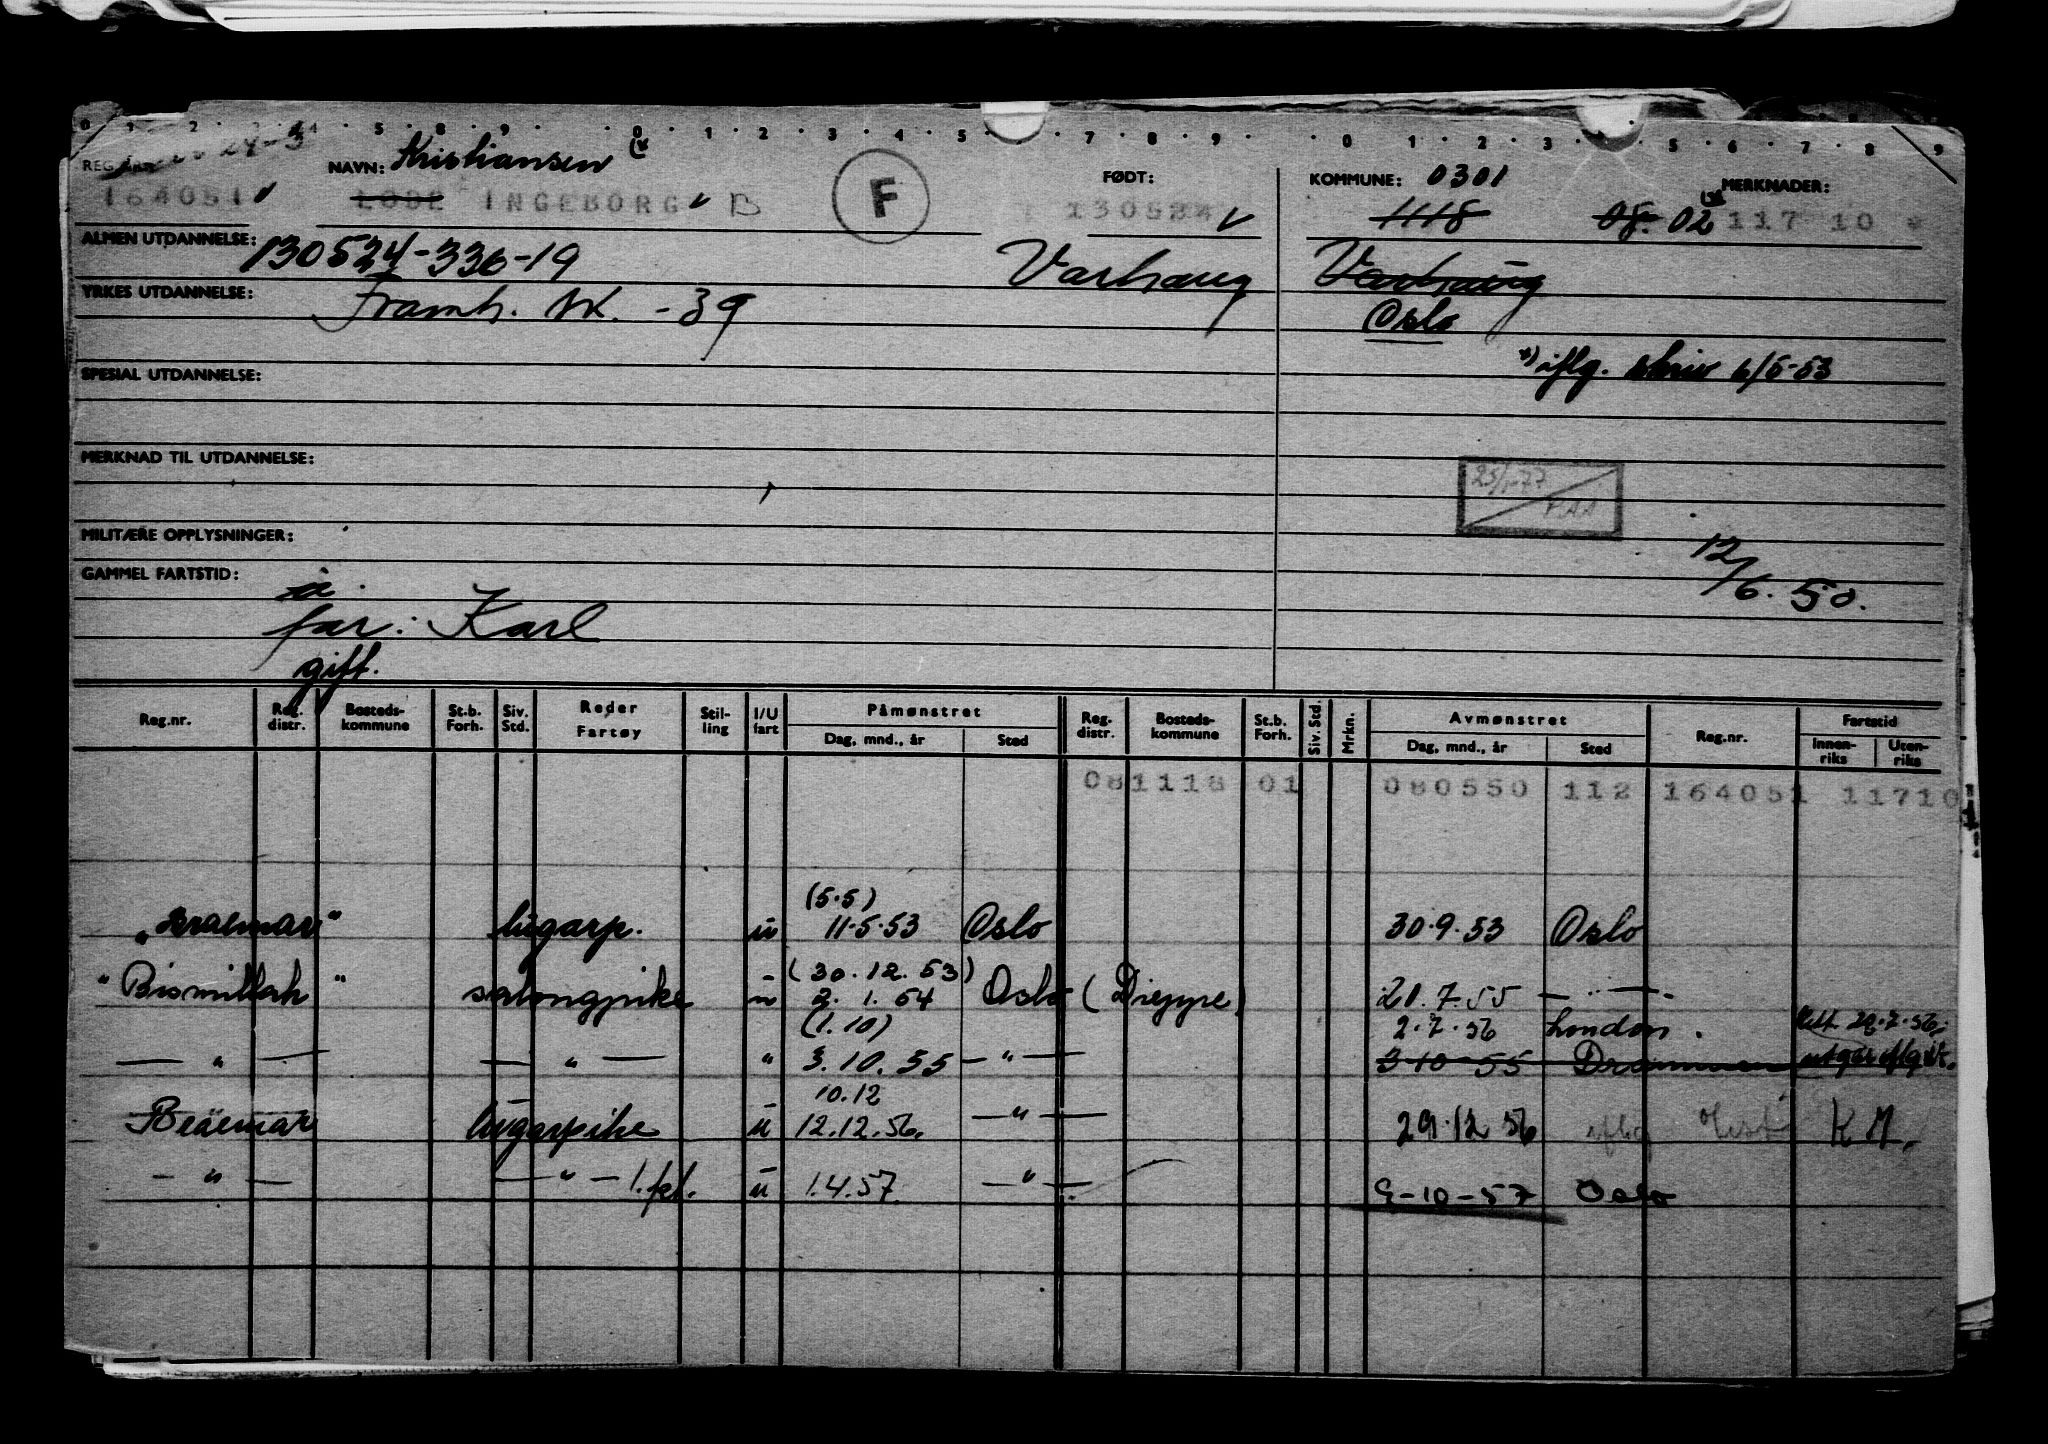 0 1 2 3 4 5 8 9 0 1 2 3 4 5 7 8 9 0 1 2 3 5 6 7 8 9
REG. NAVN: Kristiansen x) FØDT: KOMMUNE: 0301 MERKNADER:
164051 v LODE INGEBORG v B F 130524 v 1118 08. 02 x) 117 10
ALMEN UTDANNELSE: 130524-336-19 Varhaug Varhaug
YRKES UTDANNELSE: Framh. sk. -39 Oslo
x) iflg. skriv 6/5-53
SPESIAL UTDANNELSE:
MERKNAD TIL UTDANNELSE:
25/1-77
MILITÆRE OPPLYSNINGER:
12/6. 50.
GAMMEL FARTSTID:
far: Karl
gift.
Reg.nr. Reg. distr. Bosteds-kommune St.b. Forh. Siv. Std. Reder Fartøy Stil-ling I/U fart Påmønstret Dag, mnd., år Sted Reg. distr. Bosteds-kommune St.b. Forh. Siv. Std. Mrkn. Avmønstret Dag, mnd., år Sted Reg.nr. Fartstid Innen-riks Uten-riks
081118 01 080550 112 164051 11710
(5.5)
"Braemar" lugarp. u 11.5.53 Oslo 30.9.53 Oslo
(30.12.53)
"Bismillah" salongpike u 2. 1. 54 Oslo (Dieppe) 21.7.55 — " —
(1.10) 2.7.56 London. 29.7.56
— " — — " — " 3.10.55 — " — 3-10-55 Drammen utgår iflg
10.12
Braemar lugarpike u 12.12.56. — " — 29.12 56 iflg K M.
— " — — " — 1.kl. u 1.4.57. — " — 9-10-57 Oslo